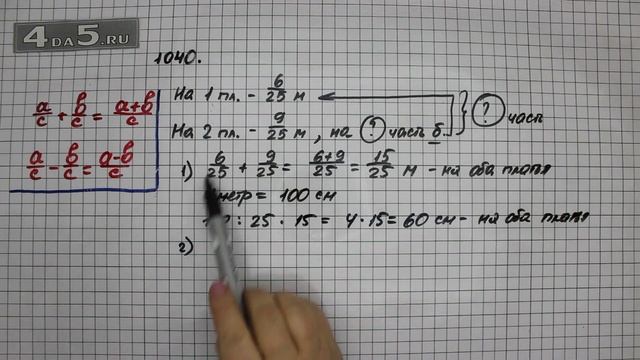 4DA5.RU
1040.
a/c + b/c = a+b/c
a/c - b/c = a-b/c
На 1 пл. - 6/25 м
На 2 пл. - 9/25 м, на ? часть б. } ? часть
1) 6/25 + 9/25 = 6+9/25 = 15/25 м - на оба платя
= 100 см
: 25 · 15 = 4 · 15 = 60 см - на оба платя
2)